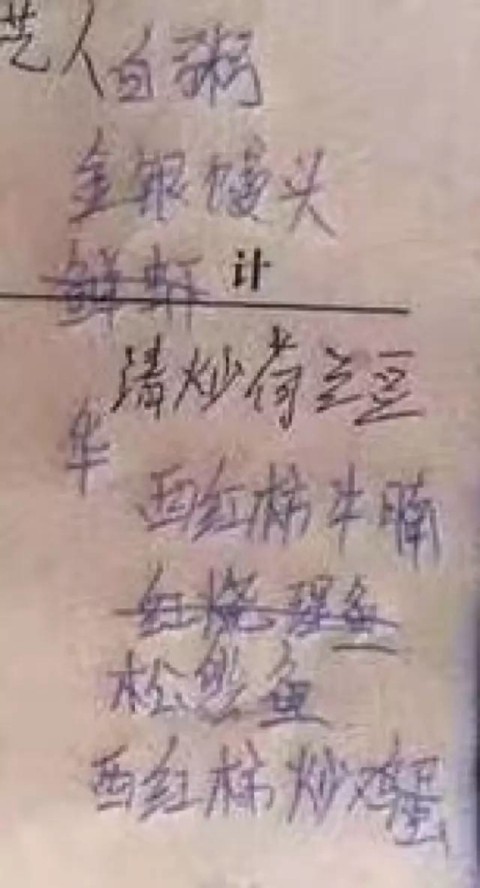 艺人白粥
金银馒头
鲜虾 计
清炒荷兰豆
华
西红柿牛腩
红烧鲤鱼
松鱼
西红柿炒鸡蛋